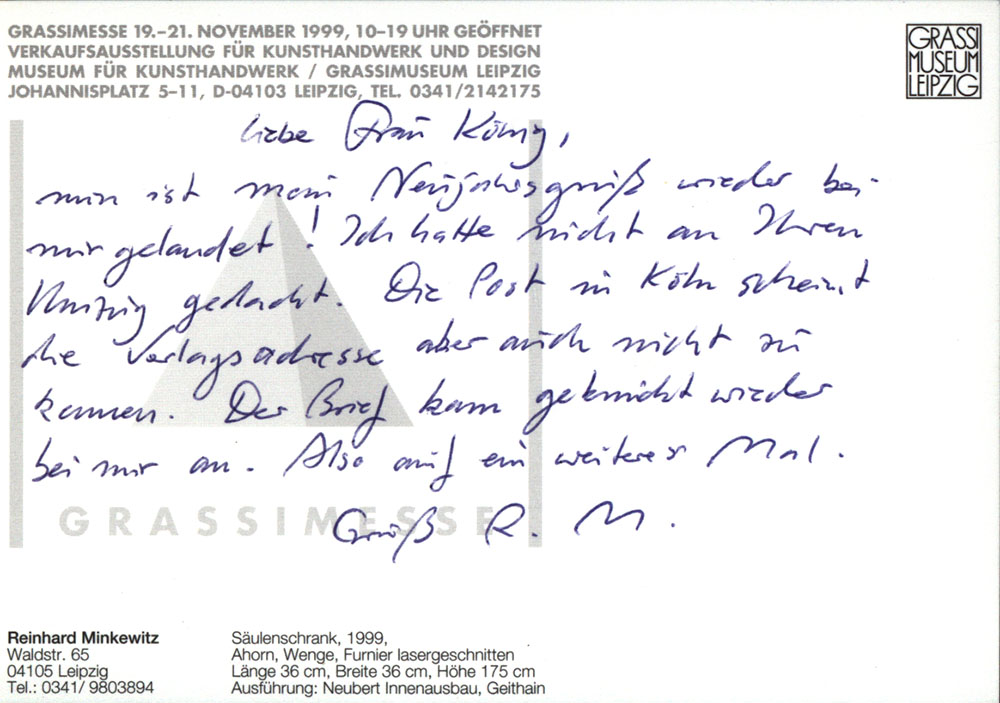 GRASSIMESSE 19.–21. NOVEMBER 1999, 10–19 UHR GEÖFFNET
VERKAUFSAUSSTELLUNG FÜR KUNSTHANDWERK UND DESIGN
MUSEUM FÜR KUNSTHANDWERK / GRASSIMUSEUM LEIPZIG
JOHANNISPLATZ 5–11, D-04103 LEIPZIG, TEL. 0341/2142175
GRASSI
MUSEUM
LEIPZIG
liebe Frau König,
nun ist mein Neujahrsgruß wieder bei
mir gelandet! Ich hatte nicht an Ihren
Umzug gedacht. Die Post in Köln scheint
die Verlagsadresse aber auch nicht zu
kennen. Der Brief kam geknickt wieder
bei mir an. Also auf ein weiteres Mal.
GRASSIMESSE
Gruß R. M.
Reinhard Minkewitz
Waldstr. 65
04105 Leipzig
Tel.: 0341/ 9803894
Säulenschrank, 1999,
Ahorn, Wenge, Furnier lasergeschnitten
Länge 36 cm, Breite 36 cm, Höhe 175 cm
Ausführung: Neubert Innenausbau, Geithain